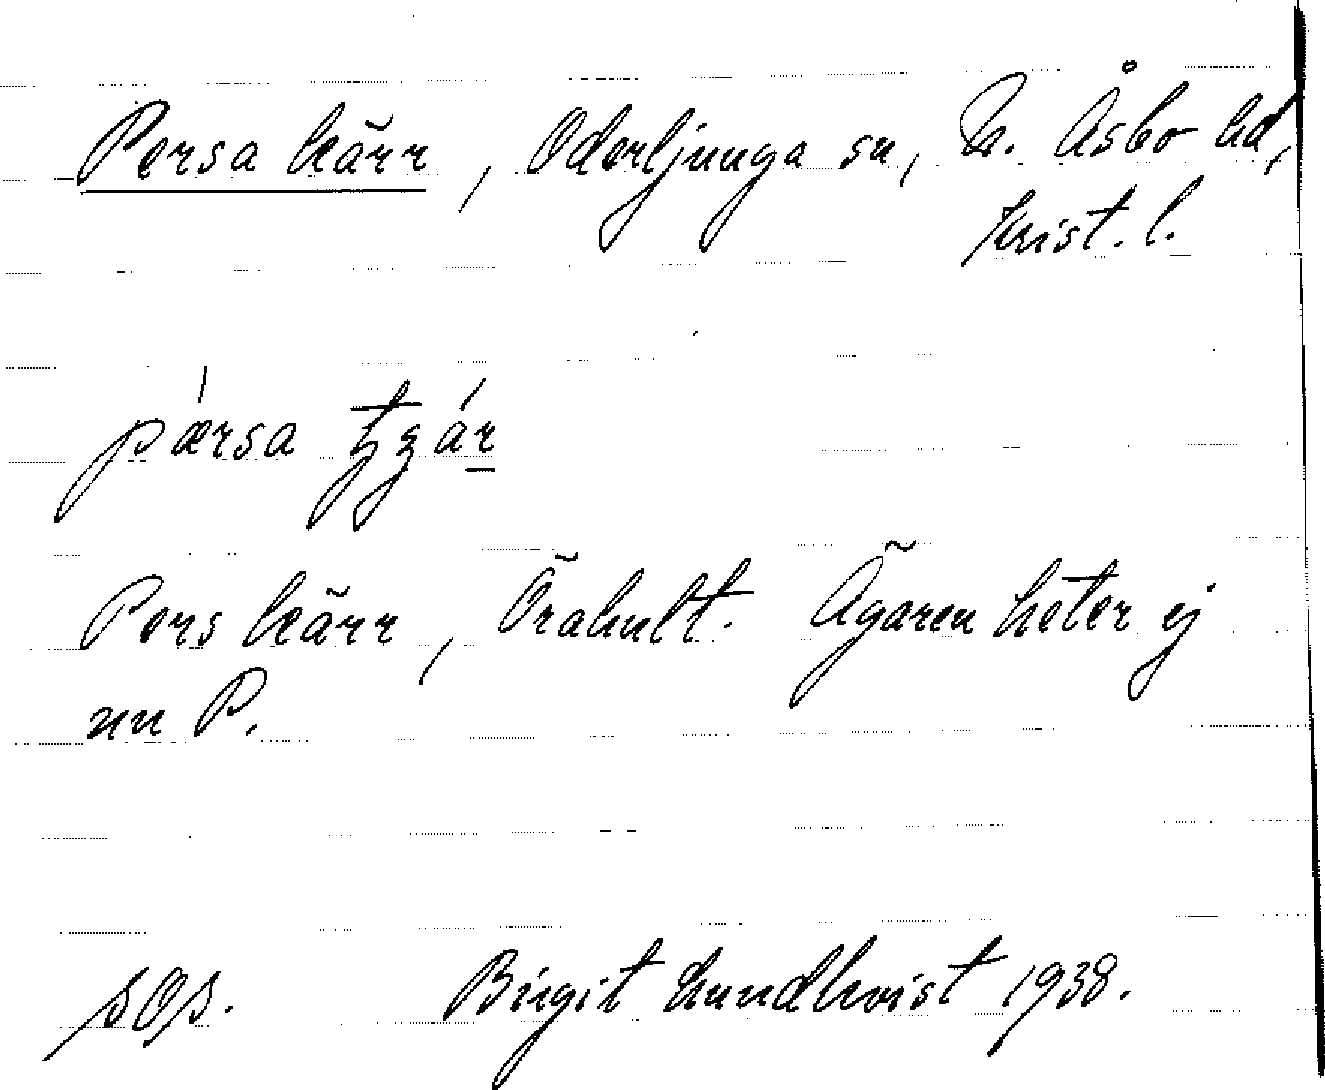 Persa kärr, Oderljunga sn, N. Åsbo hd,
Krist. l.
pǽrsa tʒár
Pers kärr, Örahult. Ägaren heter ej
nu P.
Birgit Lundkvist 1938.